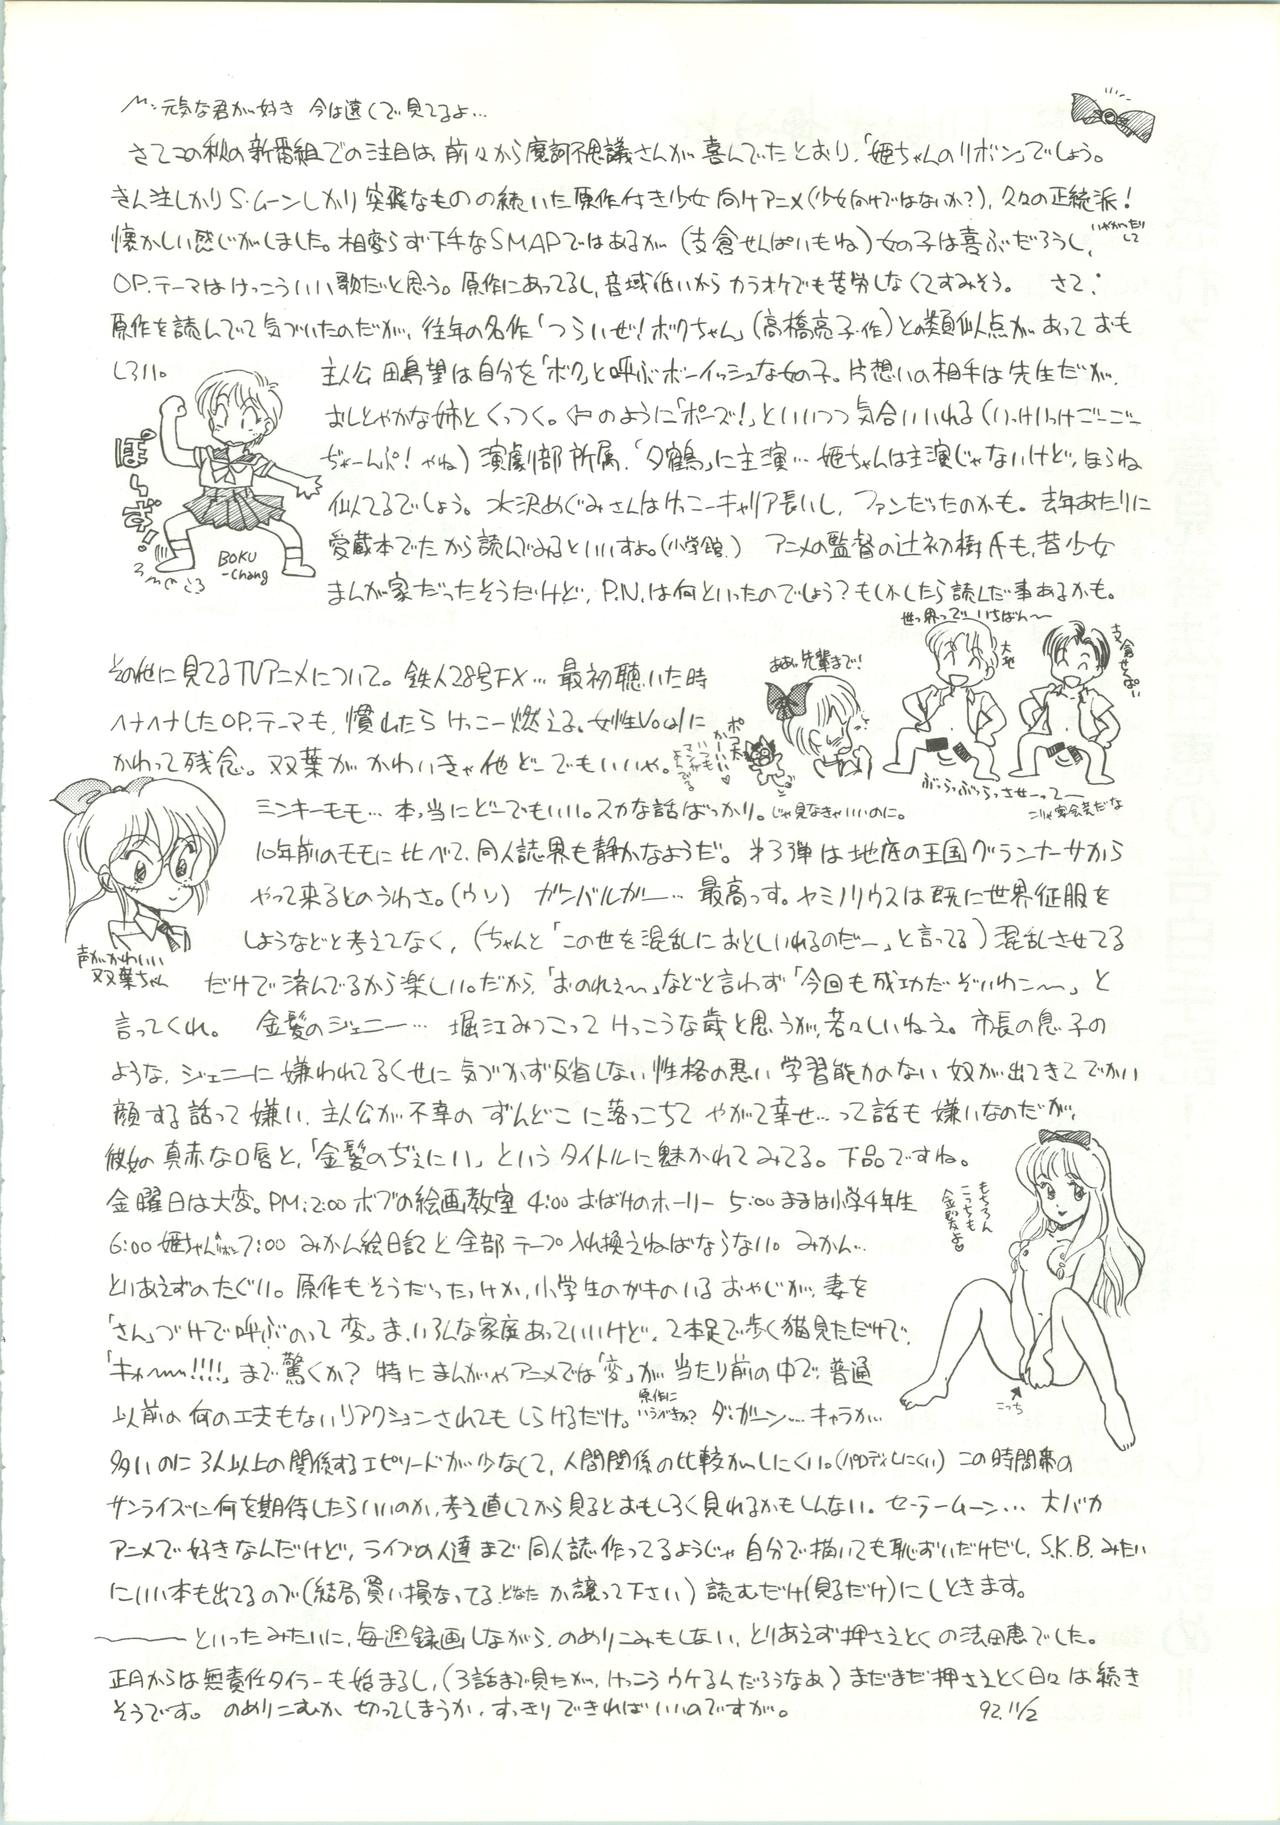 元気な君が好き 今は遠くで見てるよ…
さてこの秋の新番組での注目は、前々から魔訶不思議さんが喜んでたとおり、「姫ちゃんのリボン」でしょう。
きん注しかりS・ムーンしかり突飛なものの続いた原作付き少女向けアニメ(少女向けではないか?)、久々の正統派!
懐かしい感じがしました。相変らず下手なSMAPではあるが(支倉せんぱいもね)女の子は喜ぶだろうし、
いやがったりして
OP.テーマはけっこういい歌だと思う。原作にあってるし、音域低いからカラオケでも苦労しなくてすみそう。 さて、
原作を読んでて気づいたのだが、往年の名作「つらいぜ!ボクちゃん」(高橋亮子・作)との類似点があっておも
しろい。 主人公田島望は自分を「ボク」と呼ぶボーイッシュな女の子。片想いの相手は先生だが、
おしとやかな姉とくっつく。のように「ポーズ!」といいつつ気合いいれる(いけいけごーごー
ぢゃーんぷ!やね)演劇部所属、「夕鶴」に主演…姫ちゃんは主演じゃないけど、ほらね
似てるでしょう。水沢めぐみさんはけっこーキャリア長いし、ファンだったのかも。去年あたりに
愛蔵本でたから読んでみるといいすよ。(小学館) アニメの監督の辻初樹氏も、昔少女
まんが家だったそうだけど、P.N.は何といったのでしょう?もしかしたら読んだ事あるかも。
ぽーず!
BOKU
-chang
世っ界っでいちばん〜
大地
支倉せんぱい
ああっ先輩まで!
ポコ太
かーいい♡
ぶっらっぶっらっさせーってー
こりゃ宴会芸だな
その他に見てるTVアニメについて。鉄人28号FX…最初聴いた時
ヘナヘナしたOP.テーマも、慣れたらけっこー燃える。女性Vocalに
かわって残念。双葉がかわいきゃ他どーでもいいや。
ミンキーモモ…本っ当にどーでもいい。スカな話ばっかり。じゃ見なきゃいいのに。
10年前のモモに比べて、同人誌界も静かなようだ。第3弾は地底の王国グランナーサから
やって来るとのうわさ。(ウソ) ガンバルガー…最高っす。ヤミノリウスは既に世界征服を
しようなどと考えてなく、(ちゃんと「この世を混乱におとしいれるのだー」と言ってる)混乱させてる
声がかわいい
双葉ちゃん
だけで済んでるから楽しい。だから、「おのれぇ〜」などと言わず「今回も成功だぞいわこ〜」と
言ってくれ。 金髪のジェニー… 堀江みつこってけっこうな歳と思うが、若々しいねえ。市長の息子の
ような、ジェニーに嫌われてるくせに気づかず反省しない性格の悪い学習能力のない奴が出てきてでかい
顔する話って嫌い。主人公が不幸のずんどこに落っこちてやがて幸せ…って話も嫌いなのだが、
彼女の真赤な口唇と、「金髪のぢぇにい」というタイトルに魅かれてみてる。下品ですね。
もちろん
こっちも
金髪よ♡
こっち
金曜日は大変。PM:2:00ボブの絵画教室 4:00おばけのホーリー 5:00ままは小学4年生
6:00姫ちゃん 7:00みかん絵日記と全部テープ入れ換えねばならない。みかん…
とりあえずのたぐい。原作もそうだったっけか、小学生のガキのいるおやじが、妻を
「さん」づけで呼ぶのって変。ま、いろんな家庭あっていいけど、2本足で歩く猫見ただけで、
「キャ〜〜!!!!」まで驚くか?特にまんがやアニメでは「変」が当たり前の中で、普通
以前の何の工夫もないリアクションされてもしらけるだけ。ダ・ガーン…キャラが
多いのに3人以上の関係するエピソードが少なくて、人間関係の比較がしにくい。(パロディしにくい) この時間帯の
サンライズに何を期待したらいいのか、考え直してから見るとおもしろく見れるかもしんない。セーラームーン…大バカ
アニメで好きなんだけど、ライブの人達まで同人誌作ってるようじゃ自分で描いても恥ずいだけだし、S.K.B.みたい
にいい本も出てるので(結局買い損なってる、どなたか譲って下さい)読むだけ(見るだけ)にしときます。
といったみたいに、毎週録画しながら、のめりこみもしない、とりあえず押さえとくの法田恵でした。
正月からは無責任タイラーも始まるし、(3話まで見たが、けっこうウケるんだろうなあ)まだまだ押さえとく日々は続き
そうです。 のめりこむか、切ってしまうか、すっきりできればいいのですが。 92.11/2